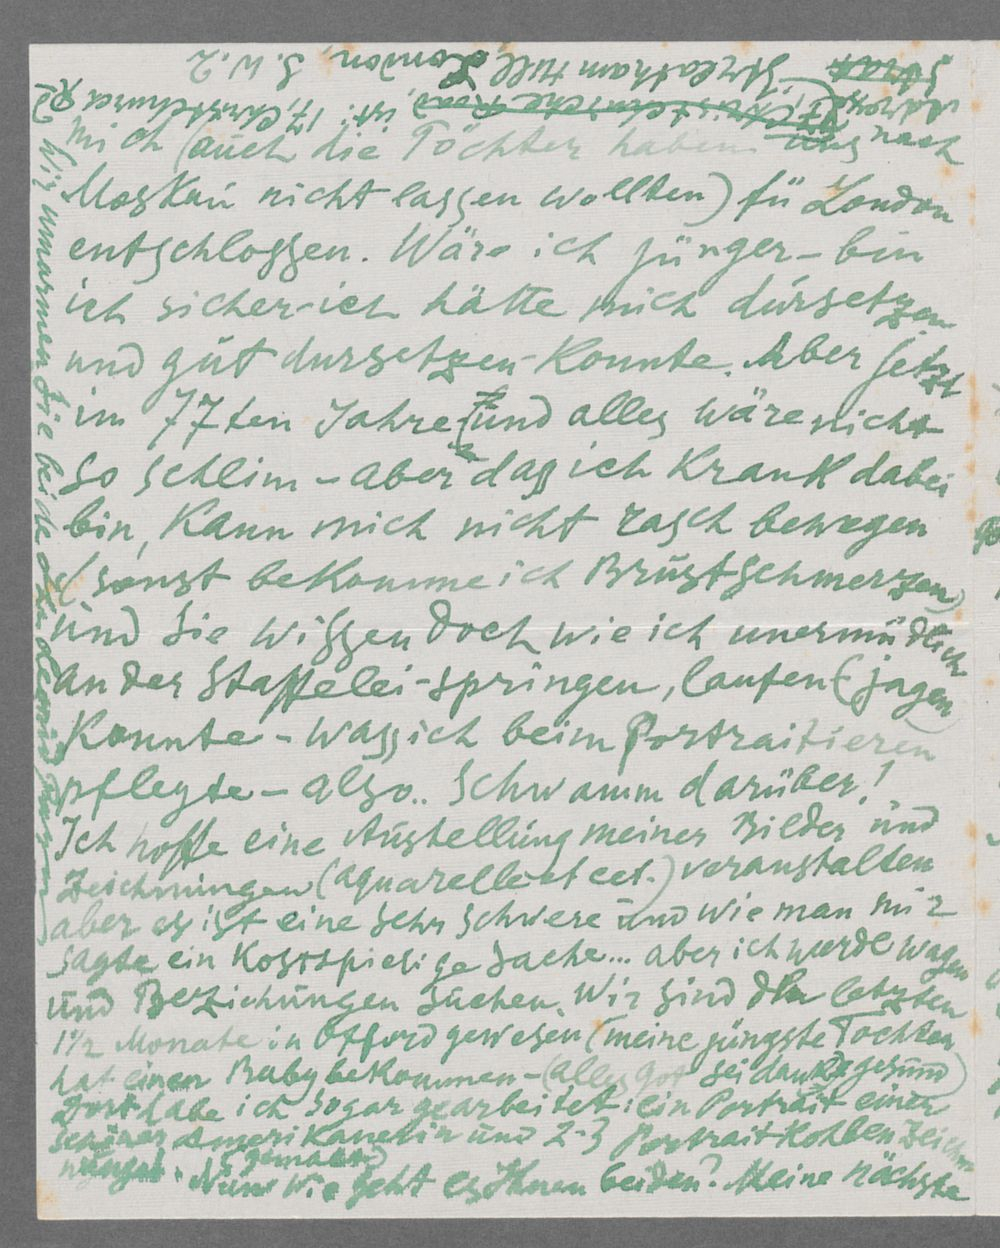 mich (auch die Töchter haben uns nach
Moskau nicht lassen wollten) fü London
entschlossen. Wäre ich jünger – bin
ich sicher – ich hätte mich dursetzen
und gut dursetzen – konnte. Aber jetzt
im 77ten Jahre und alles wäre nicht
so schlim – aber dass ich krank dabei
bin, kann mich nicht rasch bewegen
(sonst bekomme ich Brustschmerzen)
und Sie wissen doch wie ich unermüdlich
an der Staffelei – springen, laufen (jagen)
konnte – wass ich beim Portraitieren
pflegte – also.. Schwamm darüber!
Ich hoffe eine Austellung meiner Bilder und
Zeichnungen (aquarelle et cet.) veranstalten
aber es ist eine sehr schwere und wie man mir
sagte ein kostspielige Sache... aber ich werde wagen
und Beziehungen suchen. Wir sind den letzten
1½ Monate in Oxford gewesen (meine jüngste Tochter
hat einen Baby bekommen – (alles Got sei dank gesund)
Dort habe ich sogar gearbeitet: ein Portrait einer
schöner Amerikanerin und 2–3 Portrait-Kohlenzeich
nungen. (gemacht)
Nun wie geht es Ihnen beiden? Meine nächste
Adresse
ist: 17, Christchurch Rd
Streatham Hill, London, S.W. 2.
Wir umarmen Sie beide